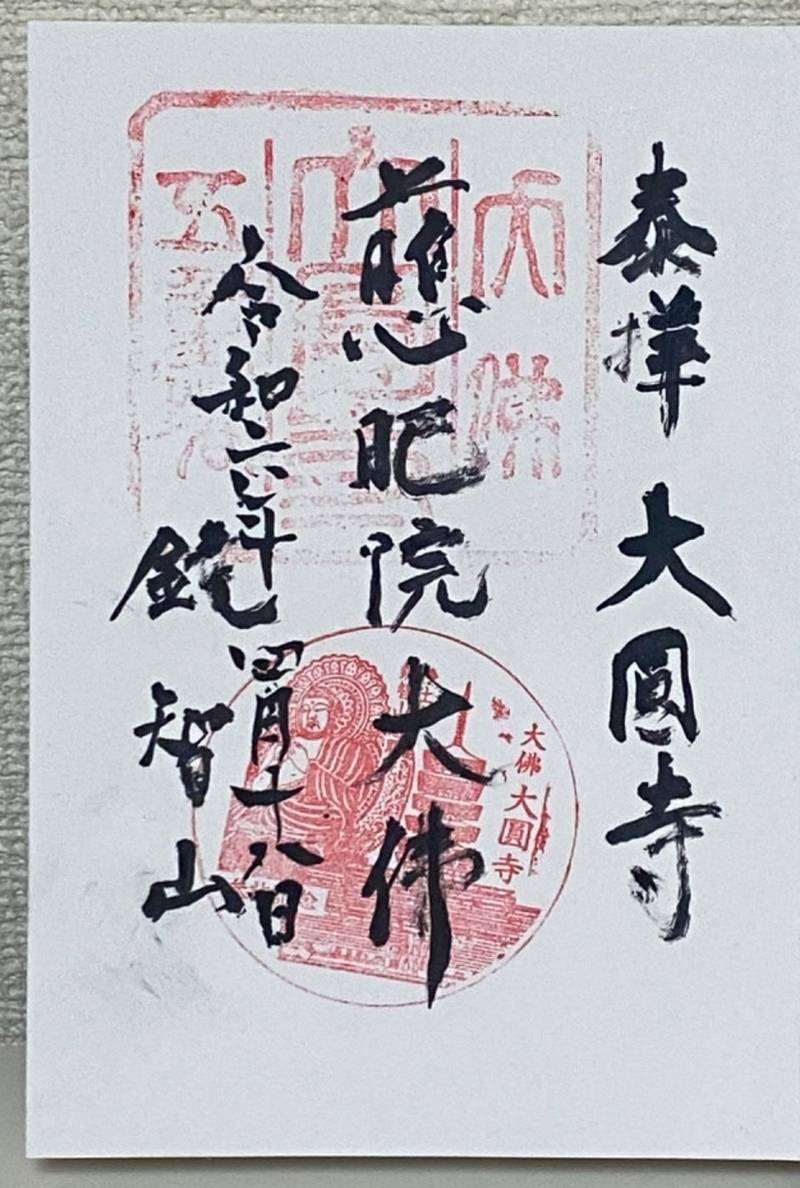 奉拝 大圓寺
慈肥院 大佛
令和六年四月十八日
智山
大佛
大佛
大圓寺